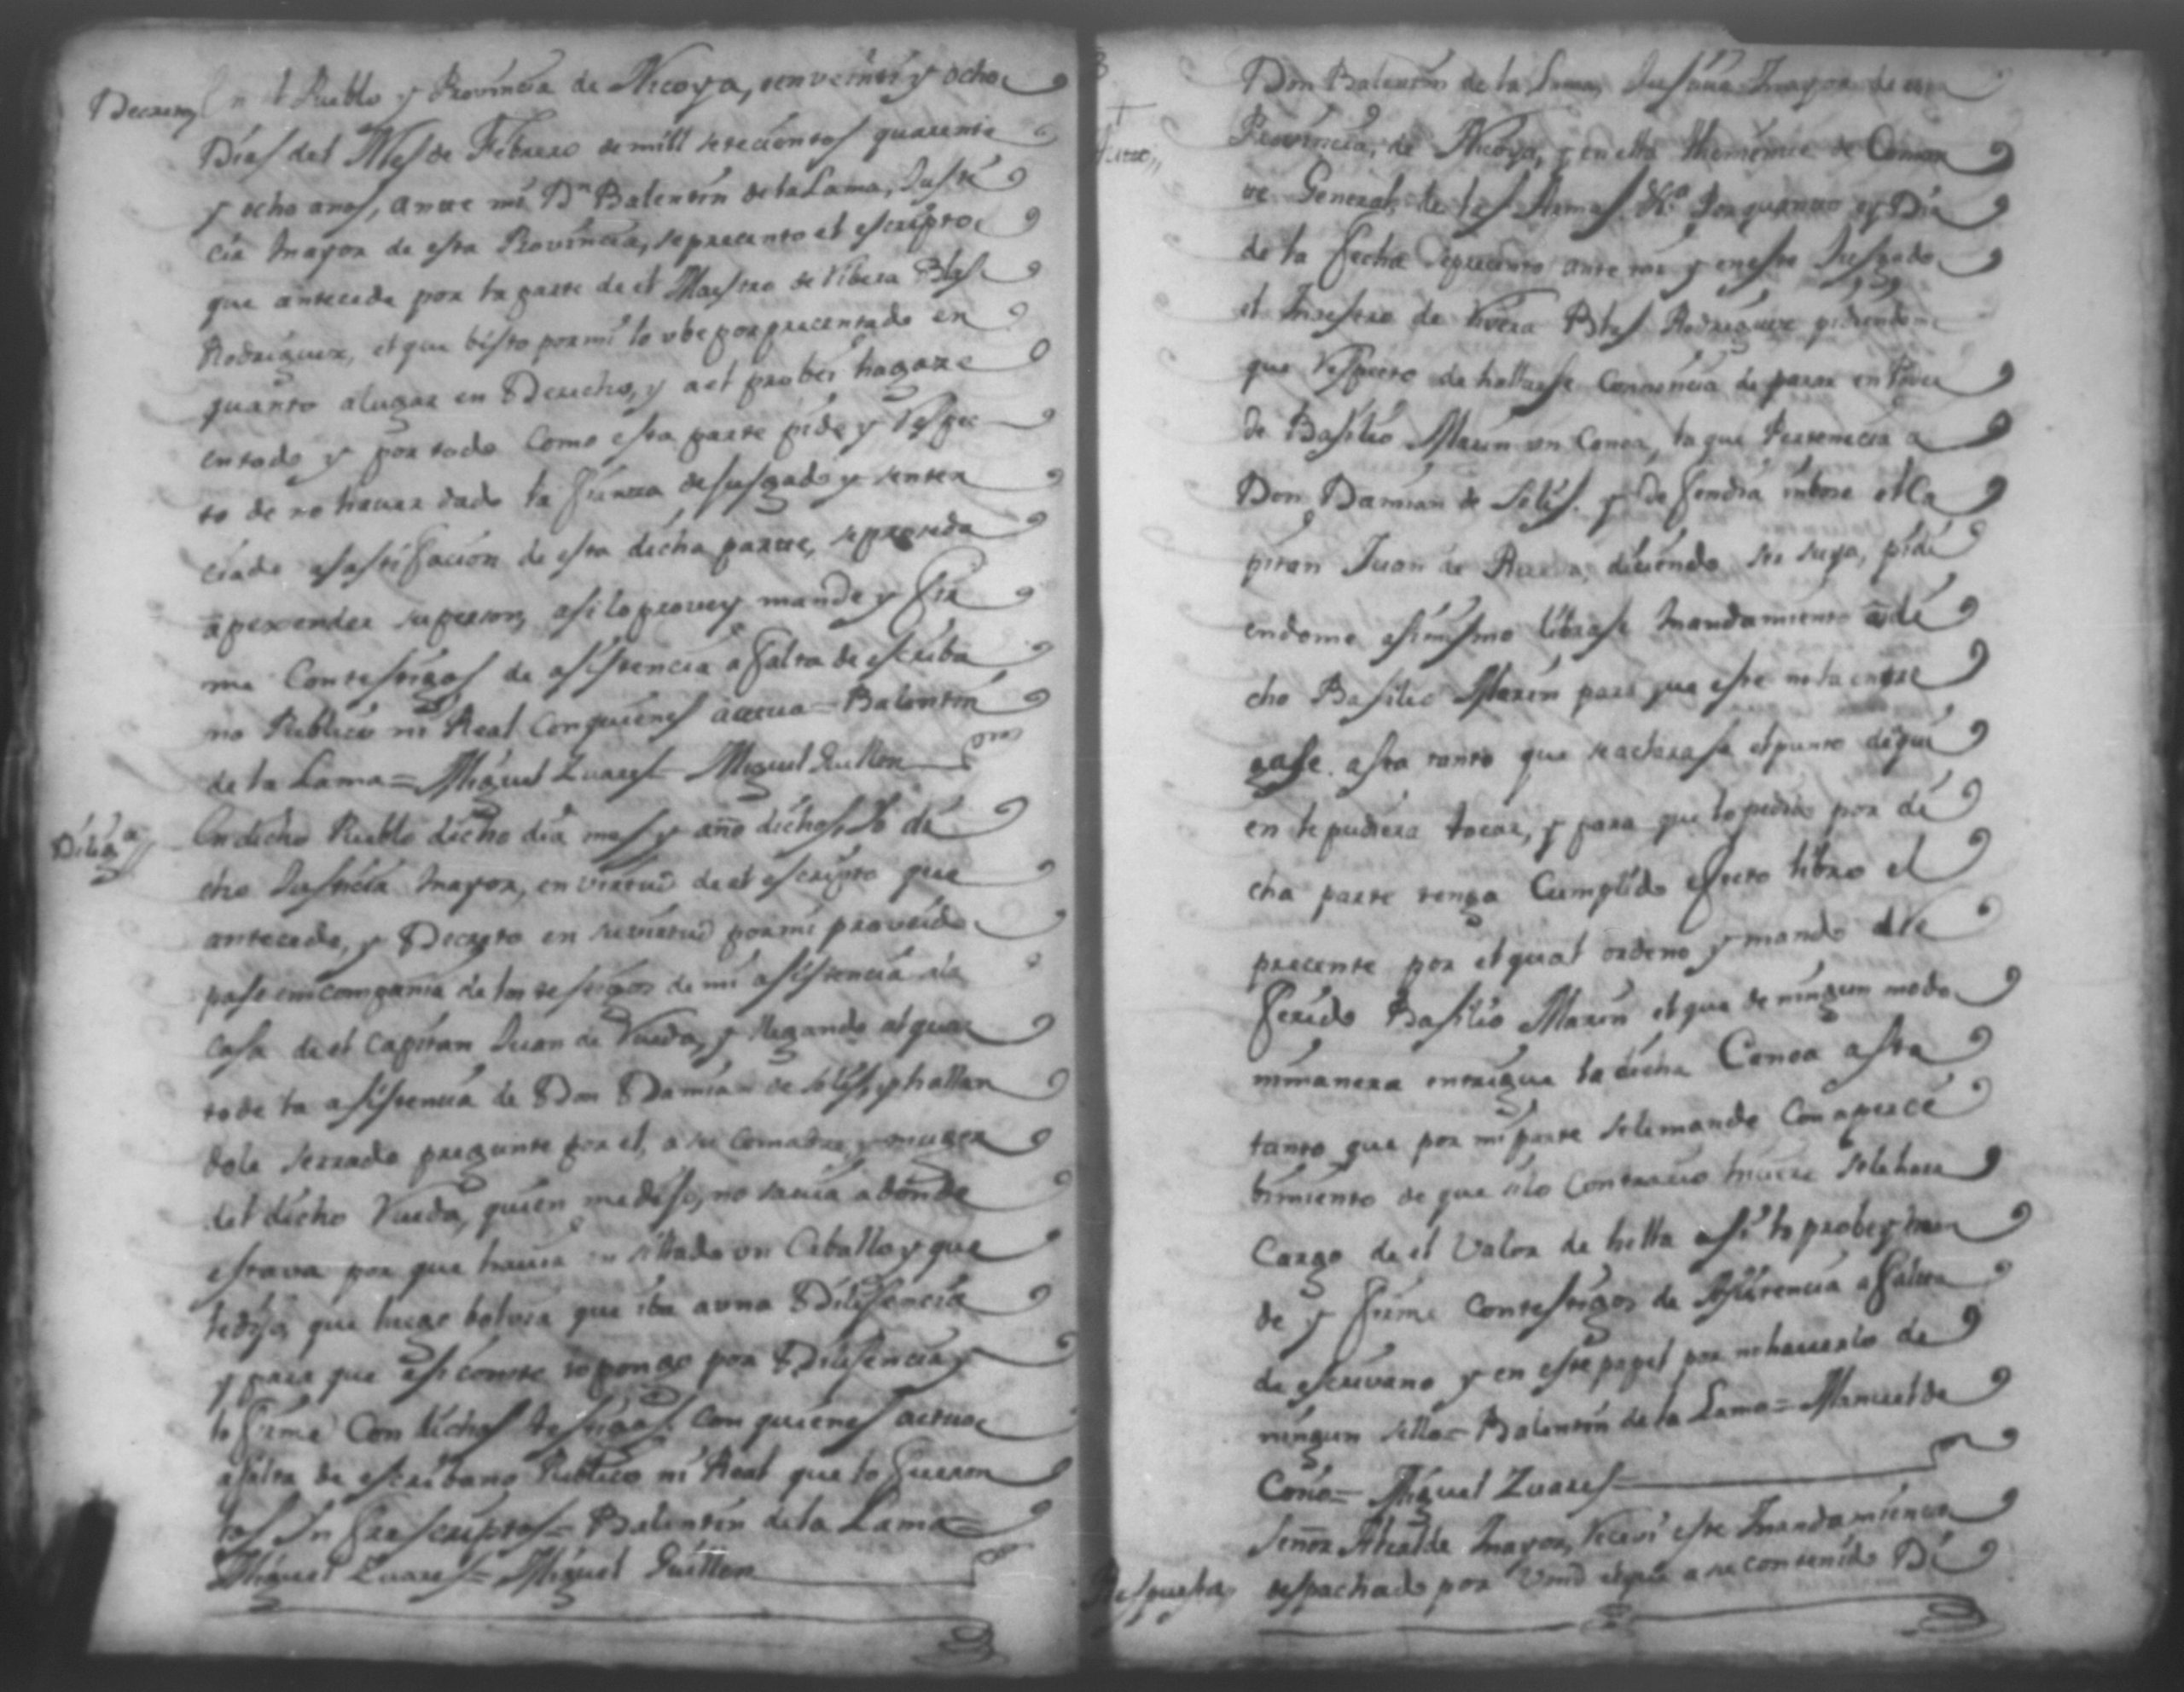 Decreto
En el Pueblo y Provincia de Nicoya, en veinte y ocho
Dias del Mes de Febrero de mill setecientos quarenta
y ocho años, ante mi Dn Balentin de la Lama, Justi
cia mayor de esta Provincia, se precento el escripto
que antecede por la parte de el Maestro de Ribera Blas
Rodriguez, el que bisto por mi lo ube por precentado en
quanto a lugar en Derecho, y a el probei hagaze
en todo y por todo Como esta parte pide y Respec
to de no haver dado la fianza de jusgado y senten
ciado a satisfacion de esta dicha parte, se proceda
a perender su person, asi lo provey mande y fir
me Con testigos de asistencia a falta de escriba
no Publico ni Real con quienes actua = Balentin
de la Lama = Miguel Zuares = Miguel Guillen
Diliga
En dicho Pueblo dicho dia mes y año dichos, Yo di
cho Justicia mayor, en virtud de el escripto que
antecede, y Decreto en su virtud por mi proveido
pase en compania de los testigos de mi asistencia a la
casa de el Capitan Juan de Rueda, y llegando al quar
to de la asistencia de Don Damian de Solis, y hallan
dole serrado pregunte por el, a su Comadre, y muger
del dicho Rueda, quien me dijo, no savia a donde
estava por que havia ensillado un Caballo y que
le dijo, que luego bolvia que iba a una Dilisencia
y para que asi conste lo pongo por Dilisencia y
lo firme Con dichos testigos Con quienes actuo
a falta de escribano Publico ni Real que lo fueron
los Infraescriptos = Balentin de la Lama =
Miguel Zuares = Miguel Guillen
Don Balentin de la Lama, Justicia mayor de esta
Provincia, de Nicoya, y en ella Theniente de Capitan
General de las Armas &a Por quanto oy Dia
de la fecha se precento ante mi y en este Jusgado
el Maestro de Rivera Blas Rodriguez pidiendome
que Respecto de hallarse Connencia de parar en Poder
de Basilio Marin un Canoa, la que Pertenecia a
Don Damian de Solis. y Defendia sobre el Ca
pitan Juan de Rueda, diciendo ser suya, pidi
endome asimismo librase mandamiento a di
cho Basilio Marin para que este no la entre
gase. asta tanto que se aclarase el punto de qui
en le pudiera tocar, y para que lo pedido por di
cha parte tenga Cumplido efecto libro el
precente por el qual ordeno y mando a el re
ferido Basilio Marin el que de ningun modo
ni manera entrigue la dicha Canoa asta
tanto que por mi parte se le mande Con aperce
bimiento de que si lo Contrario hiciere se le hara
Cargo de el Valor de hella asi lo probey man
de y firme Con testigos de Asistencia a falta
de escrivano y en este papel por no haverlo de
ningun sello = Balentin de la Lama = Manuel de
Coria = Miguel Zuares
Respuesta
Señor Alcalde mayor, Recivi este mandamiento
despachado por Vmd el que a su contenido Di